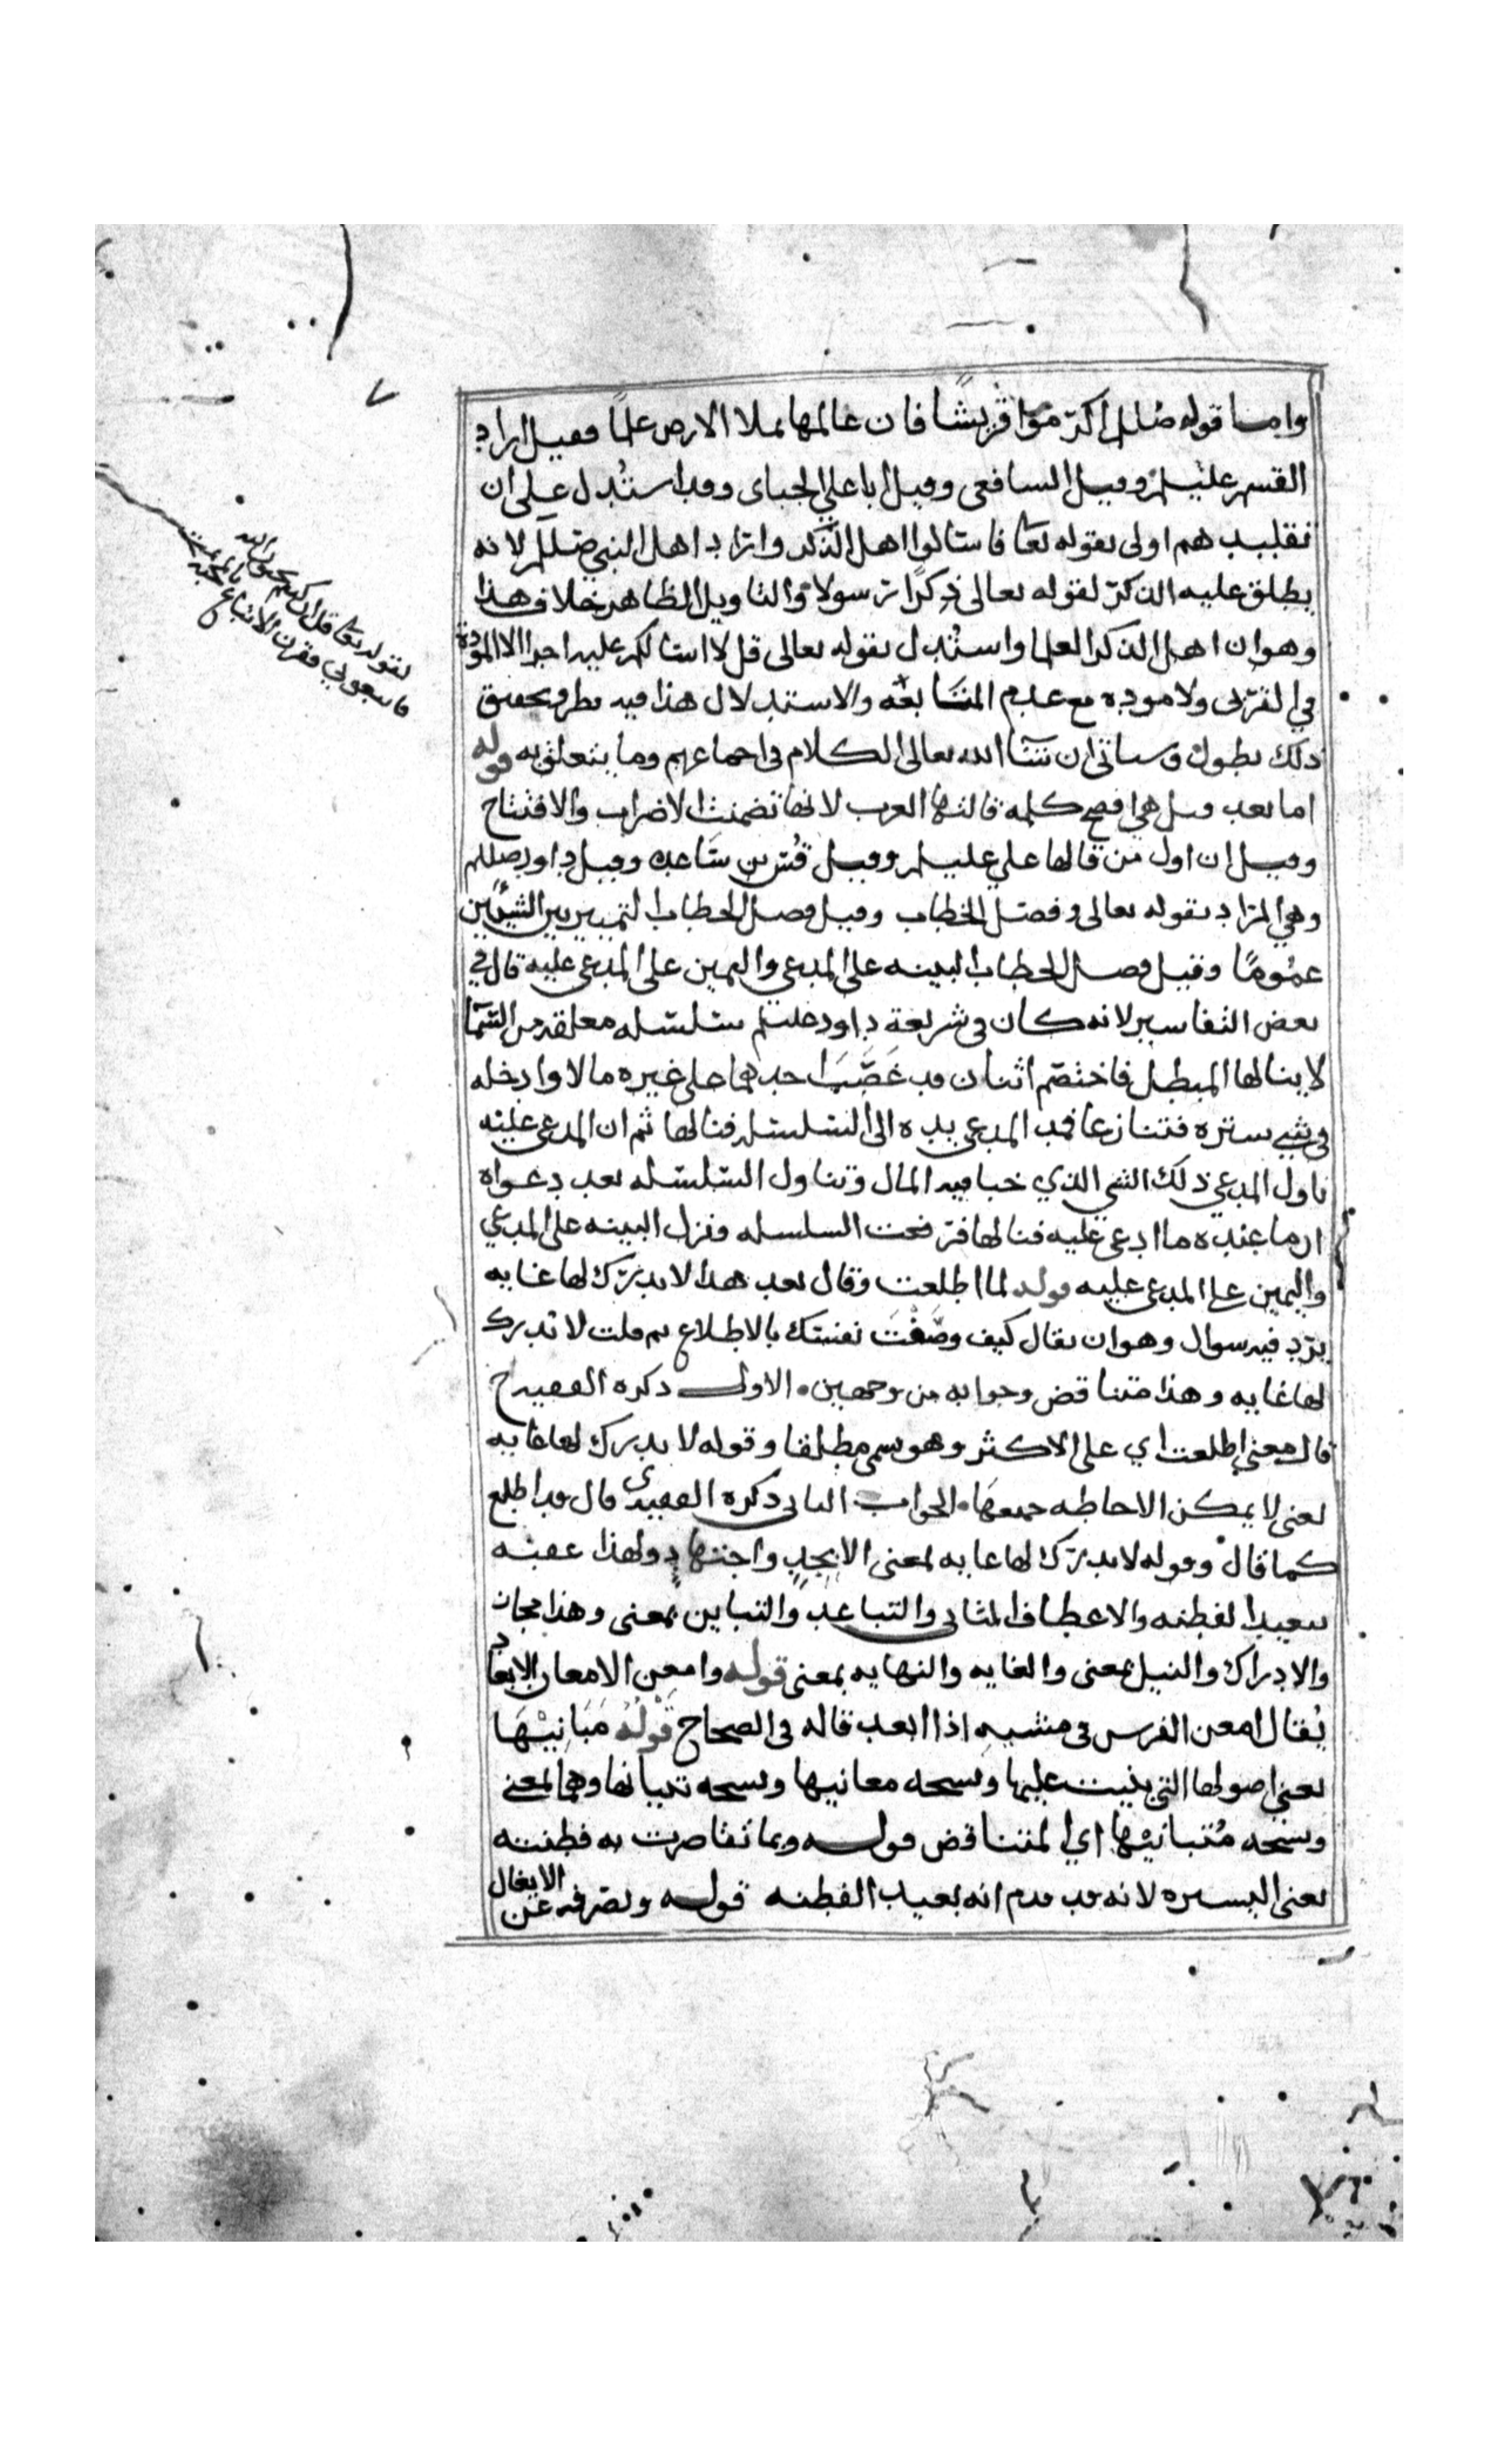 ٧
واما قوله صللم اكرموا قريشا فان عالمها يملا الارض علما فقيل اراد
القسم عليلم وقيل الشافعي وقيل ابا علي الجباى وقد استدل على ان
تقليدهم اولى بقوله تعا فاسالوا اهل الذكر واراد اهل النبي صللم لانه
يطلق عليه الذكر لقوله تعالى ذكرا رسولا والتاويل الظاهر خلاف هذا
وهو ان اهل الذكر العلما واستدل بقوله تعالى قل لا اسالكم عليه اجرا الا المودة
في القربى ولا موده مع عدم المتابعه والاستدلال هذا فيه نظر وتحقيق
ذلك يطول وسياتي ان شا الله تعالى الكلام في اجماعهم وما يتعلق به قوله
اما بعد قيل هي افصح كلمه قالتها العرب لانها تضمنت الاضراب والافتتاح
وقيل ان اول من قالها علي عليلم وقيل قس بن ساعده وقيل داود صللم
وهي المراد بقوله تعالى وفصل الخطاب وقيل فصل الخطاب التمييز بين الشيئين
عموما وقيل فصل الخطاب البينه على المدعي واليمين على المدعى عليه قال في
بعض التفاسير لانه كان في شريعة داود عليلم سلسله معلقه من السما
لا ينالها المبطل فاختصم اثنان قد غصب احدهما على غيره مالا وادخله
في شي ستره فتنازعا فمد المدعي يده الى السلسله فنالها ثم ان المدعى عليه
ناول المدعي ذلك الشي الذي خبا فيه المال وتناول السلسله بعد دعواه
ان ما عنده ما ادعى عليه فنالها فرفعت السلسله ونزل البينه على المدعي
واليمين على المدعى عليه قوله لما اطلعت وقال بعد هذا لا يدرك لها غايه
يرد فيه سوال وهو ان يقال كيف وصفت نفسك بالاطلاع ثم قلت لا تدرك
لها غايه وهذا متناقض وجوابه من وجهين الاول ذكره الفقيه ح
قال معنى اطلعت اي على الاكثر وهو يسمى مطلقا وقوله لا يدرك لها غايه
يعني لا يمكن الاحاطه جميعها الجواب الثاني ذكره الفقيه ى قال قد اطلع
كما قال وقوله لا يدرك لها غايه بمعنى الا بجد واجتهاد ولهذا عقبه
ببعيد الفطنه والاعطاف المثاني والتباعد والتباين بمعنى وهذا مجاز
والادراك والنيل بمعنى والغايه والنهايه بمعنى قوله وامعن الامعان الابعاد
يقال امعن الفرس في مشيه اذا ابعد قاله في الصحاح قوله مبانيها
يعني اصولها التي بنيت عليها ونسخه معانيها ونسخه تبيانها وهما بمعنى
ونسخه متبانيها اي المتناقض قوله وبما تقاصرت به فطنته
يعني اليسيره لانه قد قدم انه بعيد الفطنه قوله وتصرفه عن الايغال
لقوله تعا قل ان كنتم تحبون الله
فاتبعوني فقرن الاتباع بالمحبه